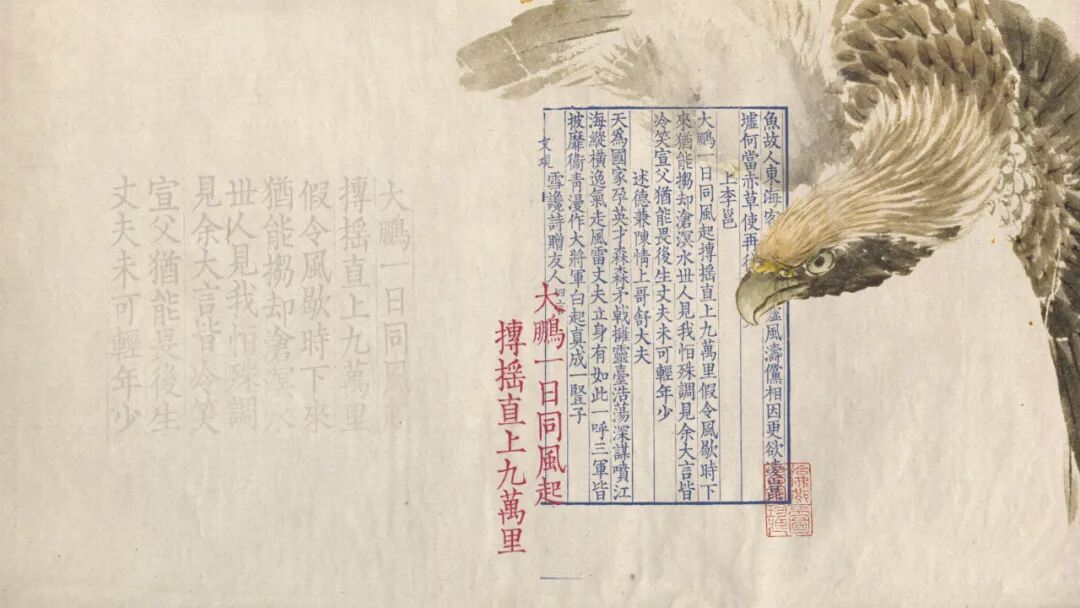 魚故人東海客風濤儻相因更欲凌崑
墟何當赤草使再往
上李邕
大鵬一日同風起摶摇直上九萬里假令風歇時下
來猶能搊却滄溟水丗人見我怕殊調見余大言皆
冷笑宣父猶能畏後生丈夫未可輕年少
述德兼陳情上哥舒大夫
天爲國家孕英才森森矛戟擁靈臺浩蕩深謀噴江
海縱橫逸氣走風雷丈夫立身有如此一呼三軍皆
披靡衞青漫作大將軍白起真成一豎子
雪讒詩贈友人
大鵬一日同風起
摶摇直上九萬里
大鵬一日同風
摶摇直上九萬里
假令風歇時下來
猶能搊却滄溟
丗人見我怕殊調
見余大言皆冷笑
宣父猶能畏後生
丈夫未可輕年少